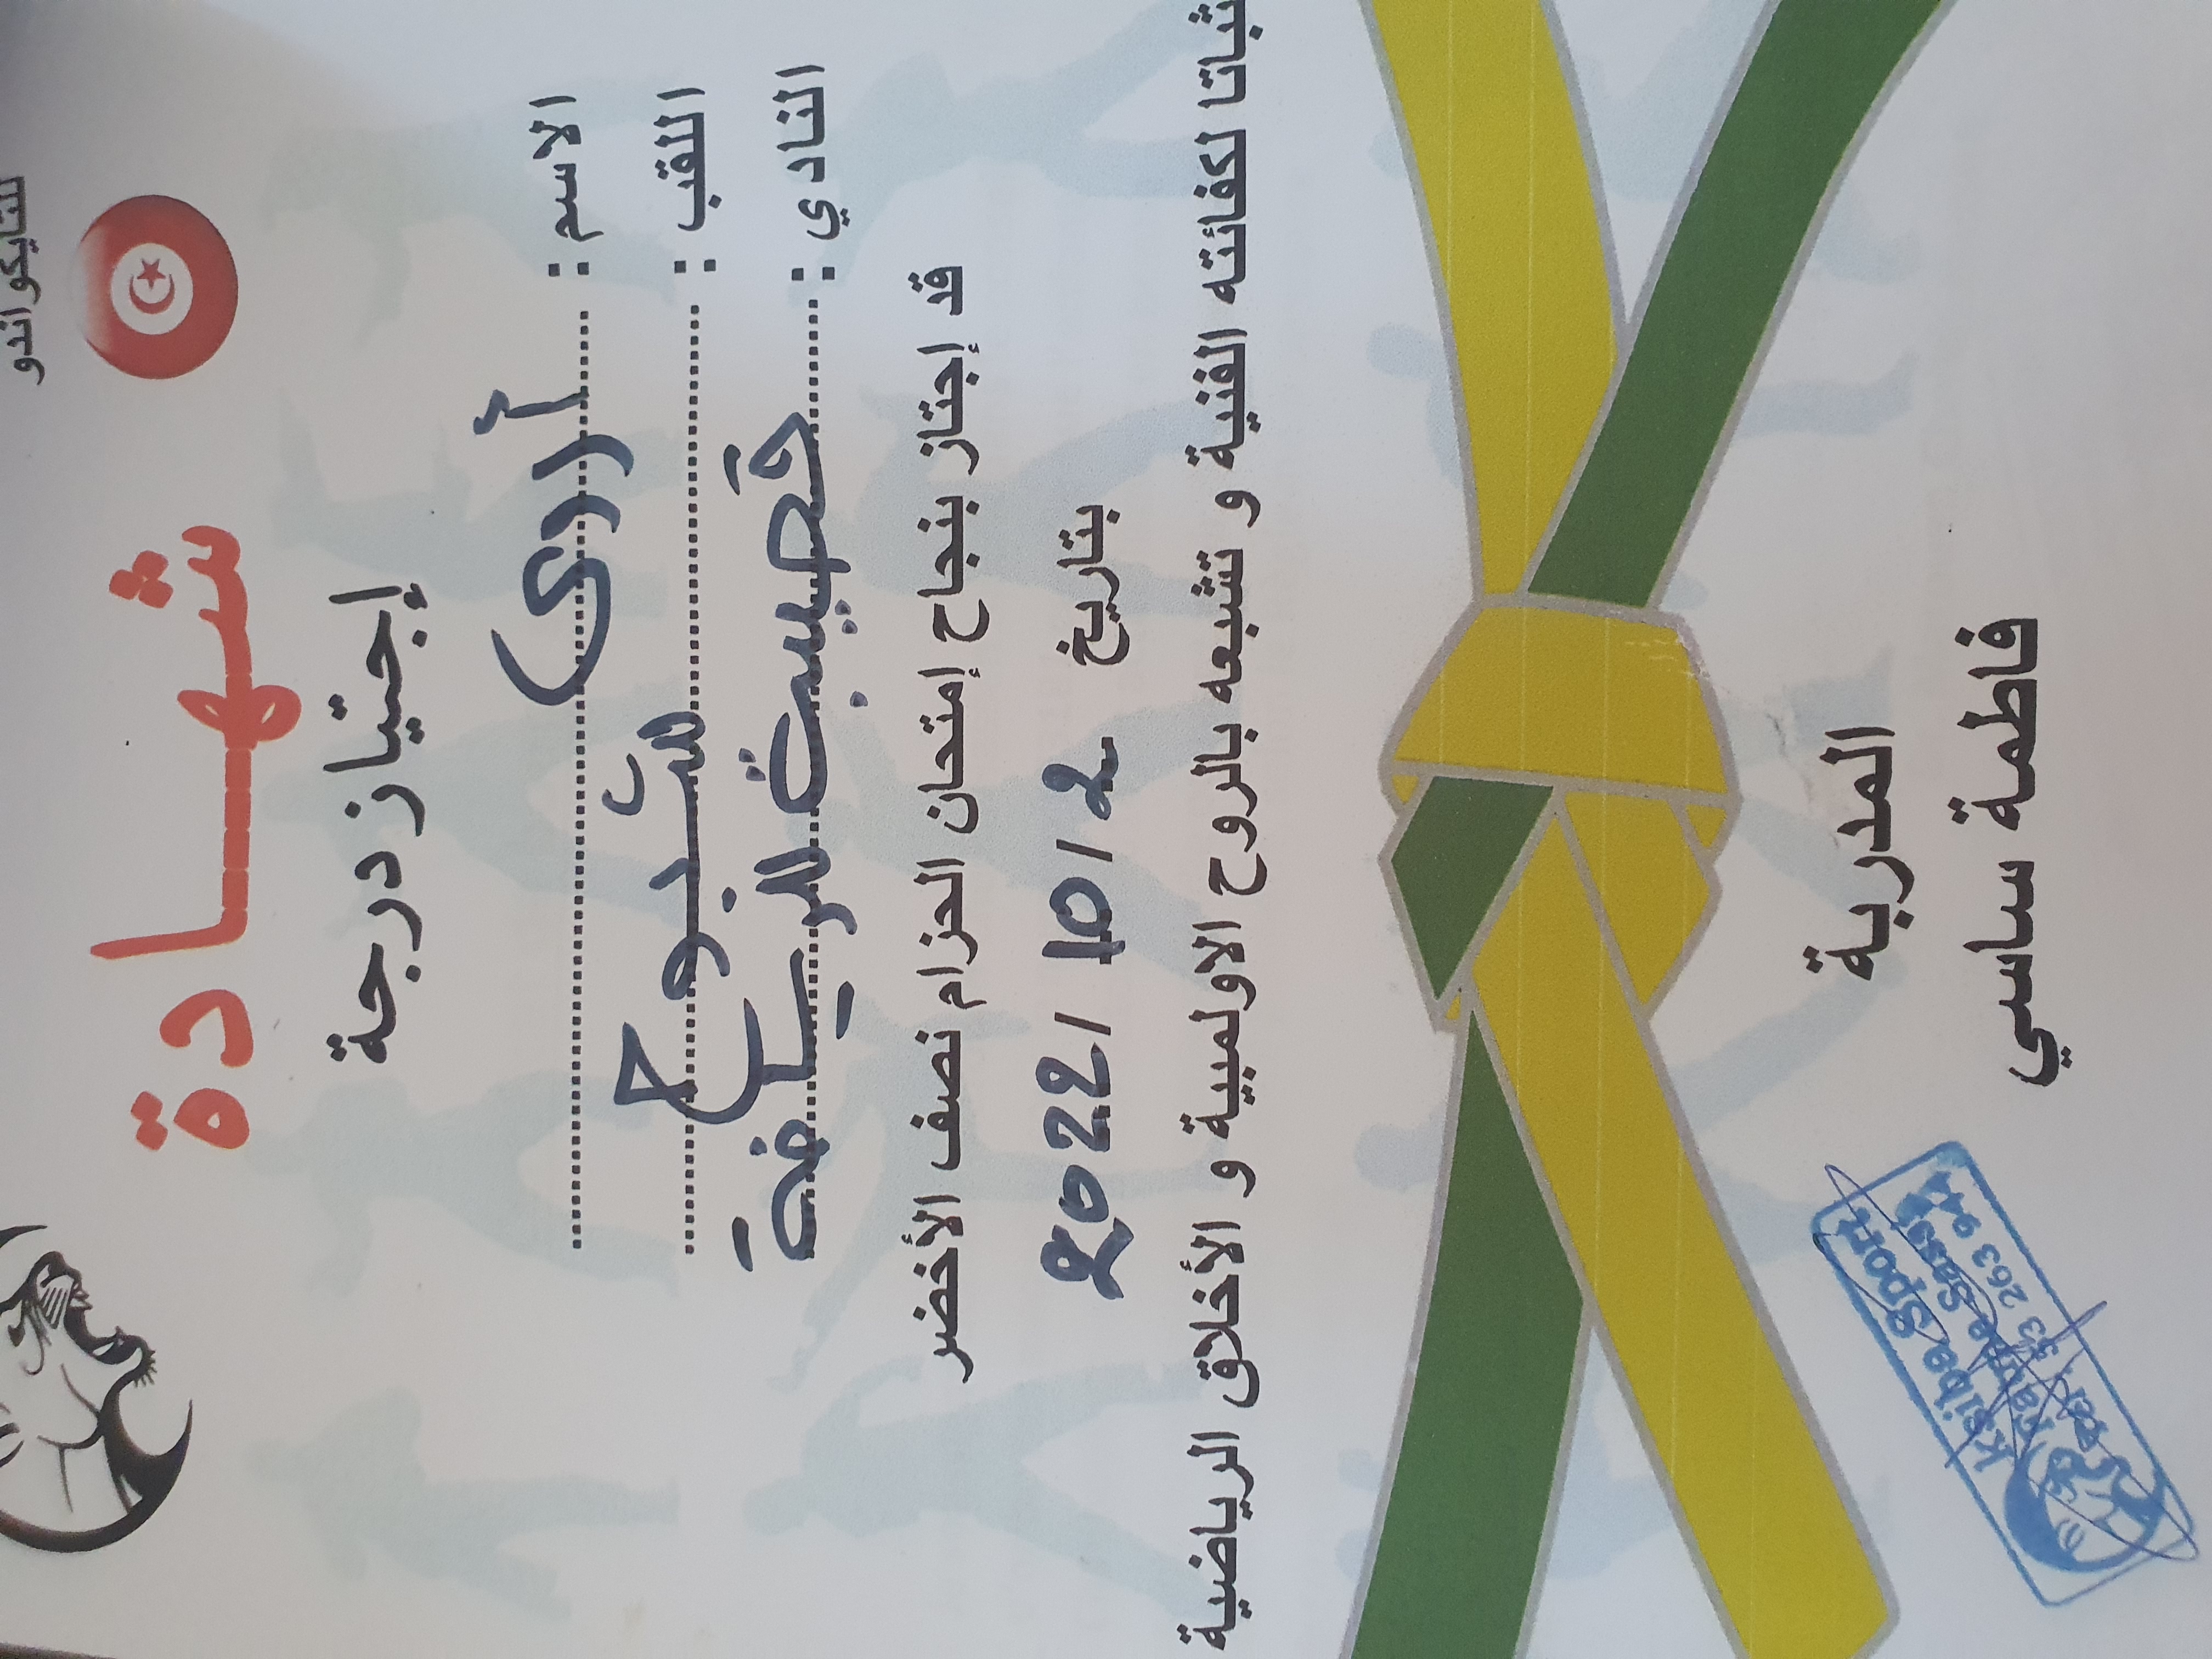 للتايكواندو
شهادة
إجتياز درجة
الاسم : أروى
اللقب :
النادي : قصيبة الرياضة
قد إجتاز بنجاح إمتحان الحزام نصف الأخضر
بتاريخ 2 / 10 / 2022
ثباتا لكفائته الفنية و تشبعه بالروح الاولمبية و الأخلاق الرياضية
المدربة
فاطمة ساسي
Ksiba Sport
Fatme Sassi